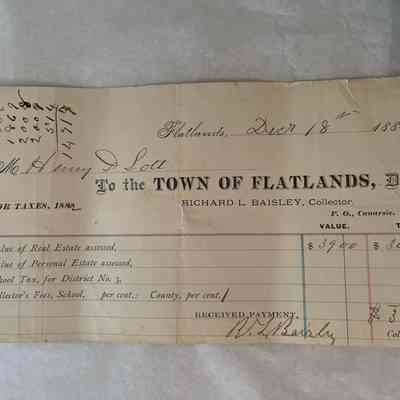 Flatlands, Decr 18th 188
M Henry D Lott
To the TOWN OF FLATLANDS, D
RICHARD L. BAISLEY, Collector,
P. O., Canarsie.
OR TAXES, 188
VALUE.
alue of Real Estate assessed, $3900 $
alue of Personal Estate assessed,
hool Tax, for District No. 3,
ollector's Fees, School, per cent.: County, per cent. 1
RECEIVED PAYMENT, $ 3
R L Baisley
Col